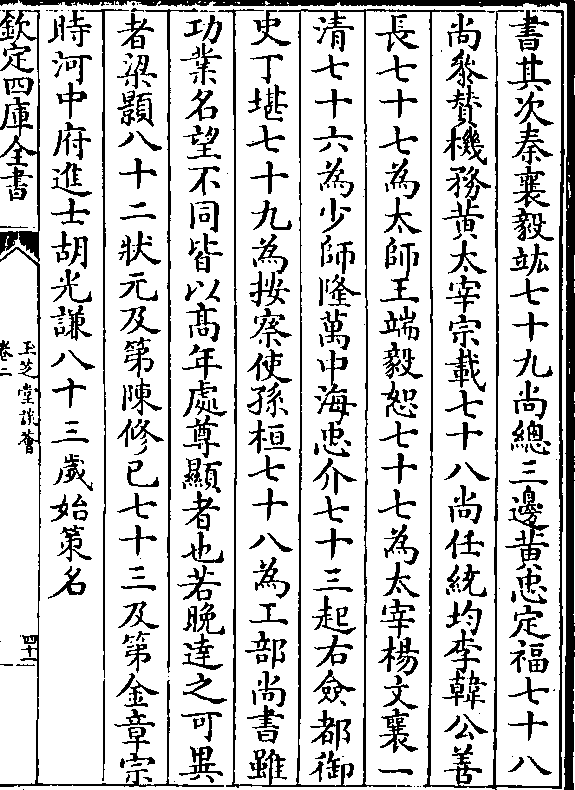 書其次秦襄毅竑七十九尚總三邊黄忠定福七十八
尚叅賛機務黄太宰宗載七十八尚任統均李韓公善
長七十七為太師王端毅恕七十七為太宰楊文襄一
清七十六為少師隆萬中海忠介七十三起右僉都御
史丁堪七十九為按察使孫桓七十八為工部尚書雖
功業名望不同皆以髙年處尊顯者也若晚達之可異
者梁顥八十二狀元及第陳修已七十三及第金章宗
時河中府進士胡光謙八十三歲始策名
欽定四庫全書
玉芝堂談薈
卷二
四十一